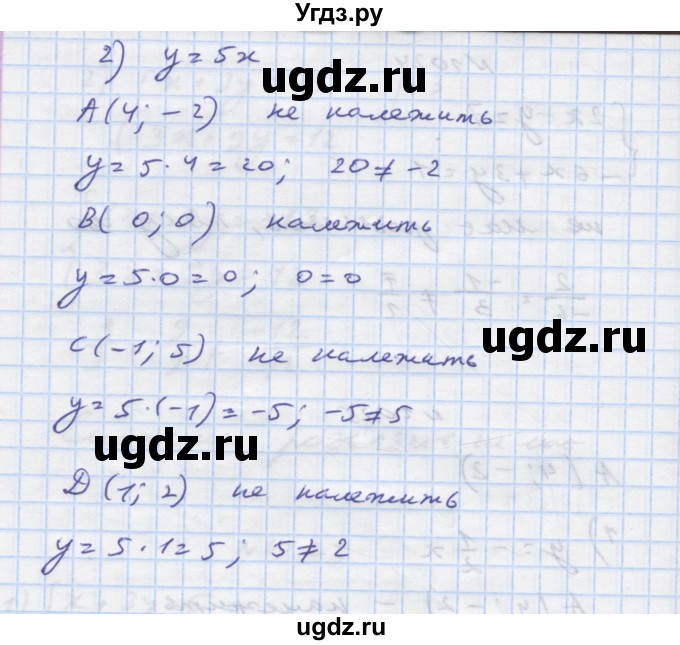 Угдз.ру
2) y = 5x
ugdz.ru
A(4; -2) не належить
y = 5 · 4 = 20; 20 ≠ -2
B(0; 0) належить
y = 5 · 0 = 0; 0 = 0
ugdz.ru
C(-1; 5) не належить
y = 5 · (-1) = -5; -5 ≠ 5
ugdz.ru
D(1; 2) не належить
y = 5 · 1 = 5; 5 ≠ 2
ugdz.ru
ugdz.ru